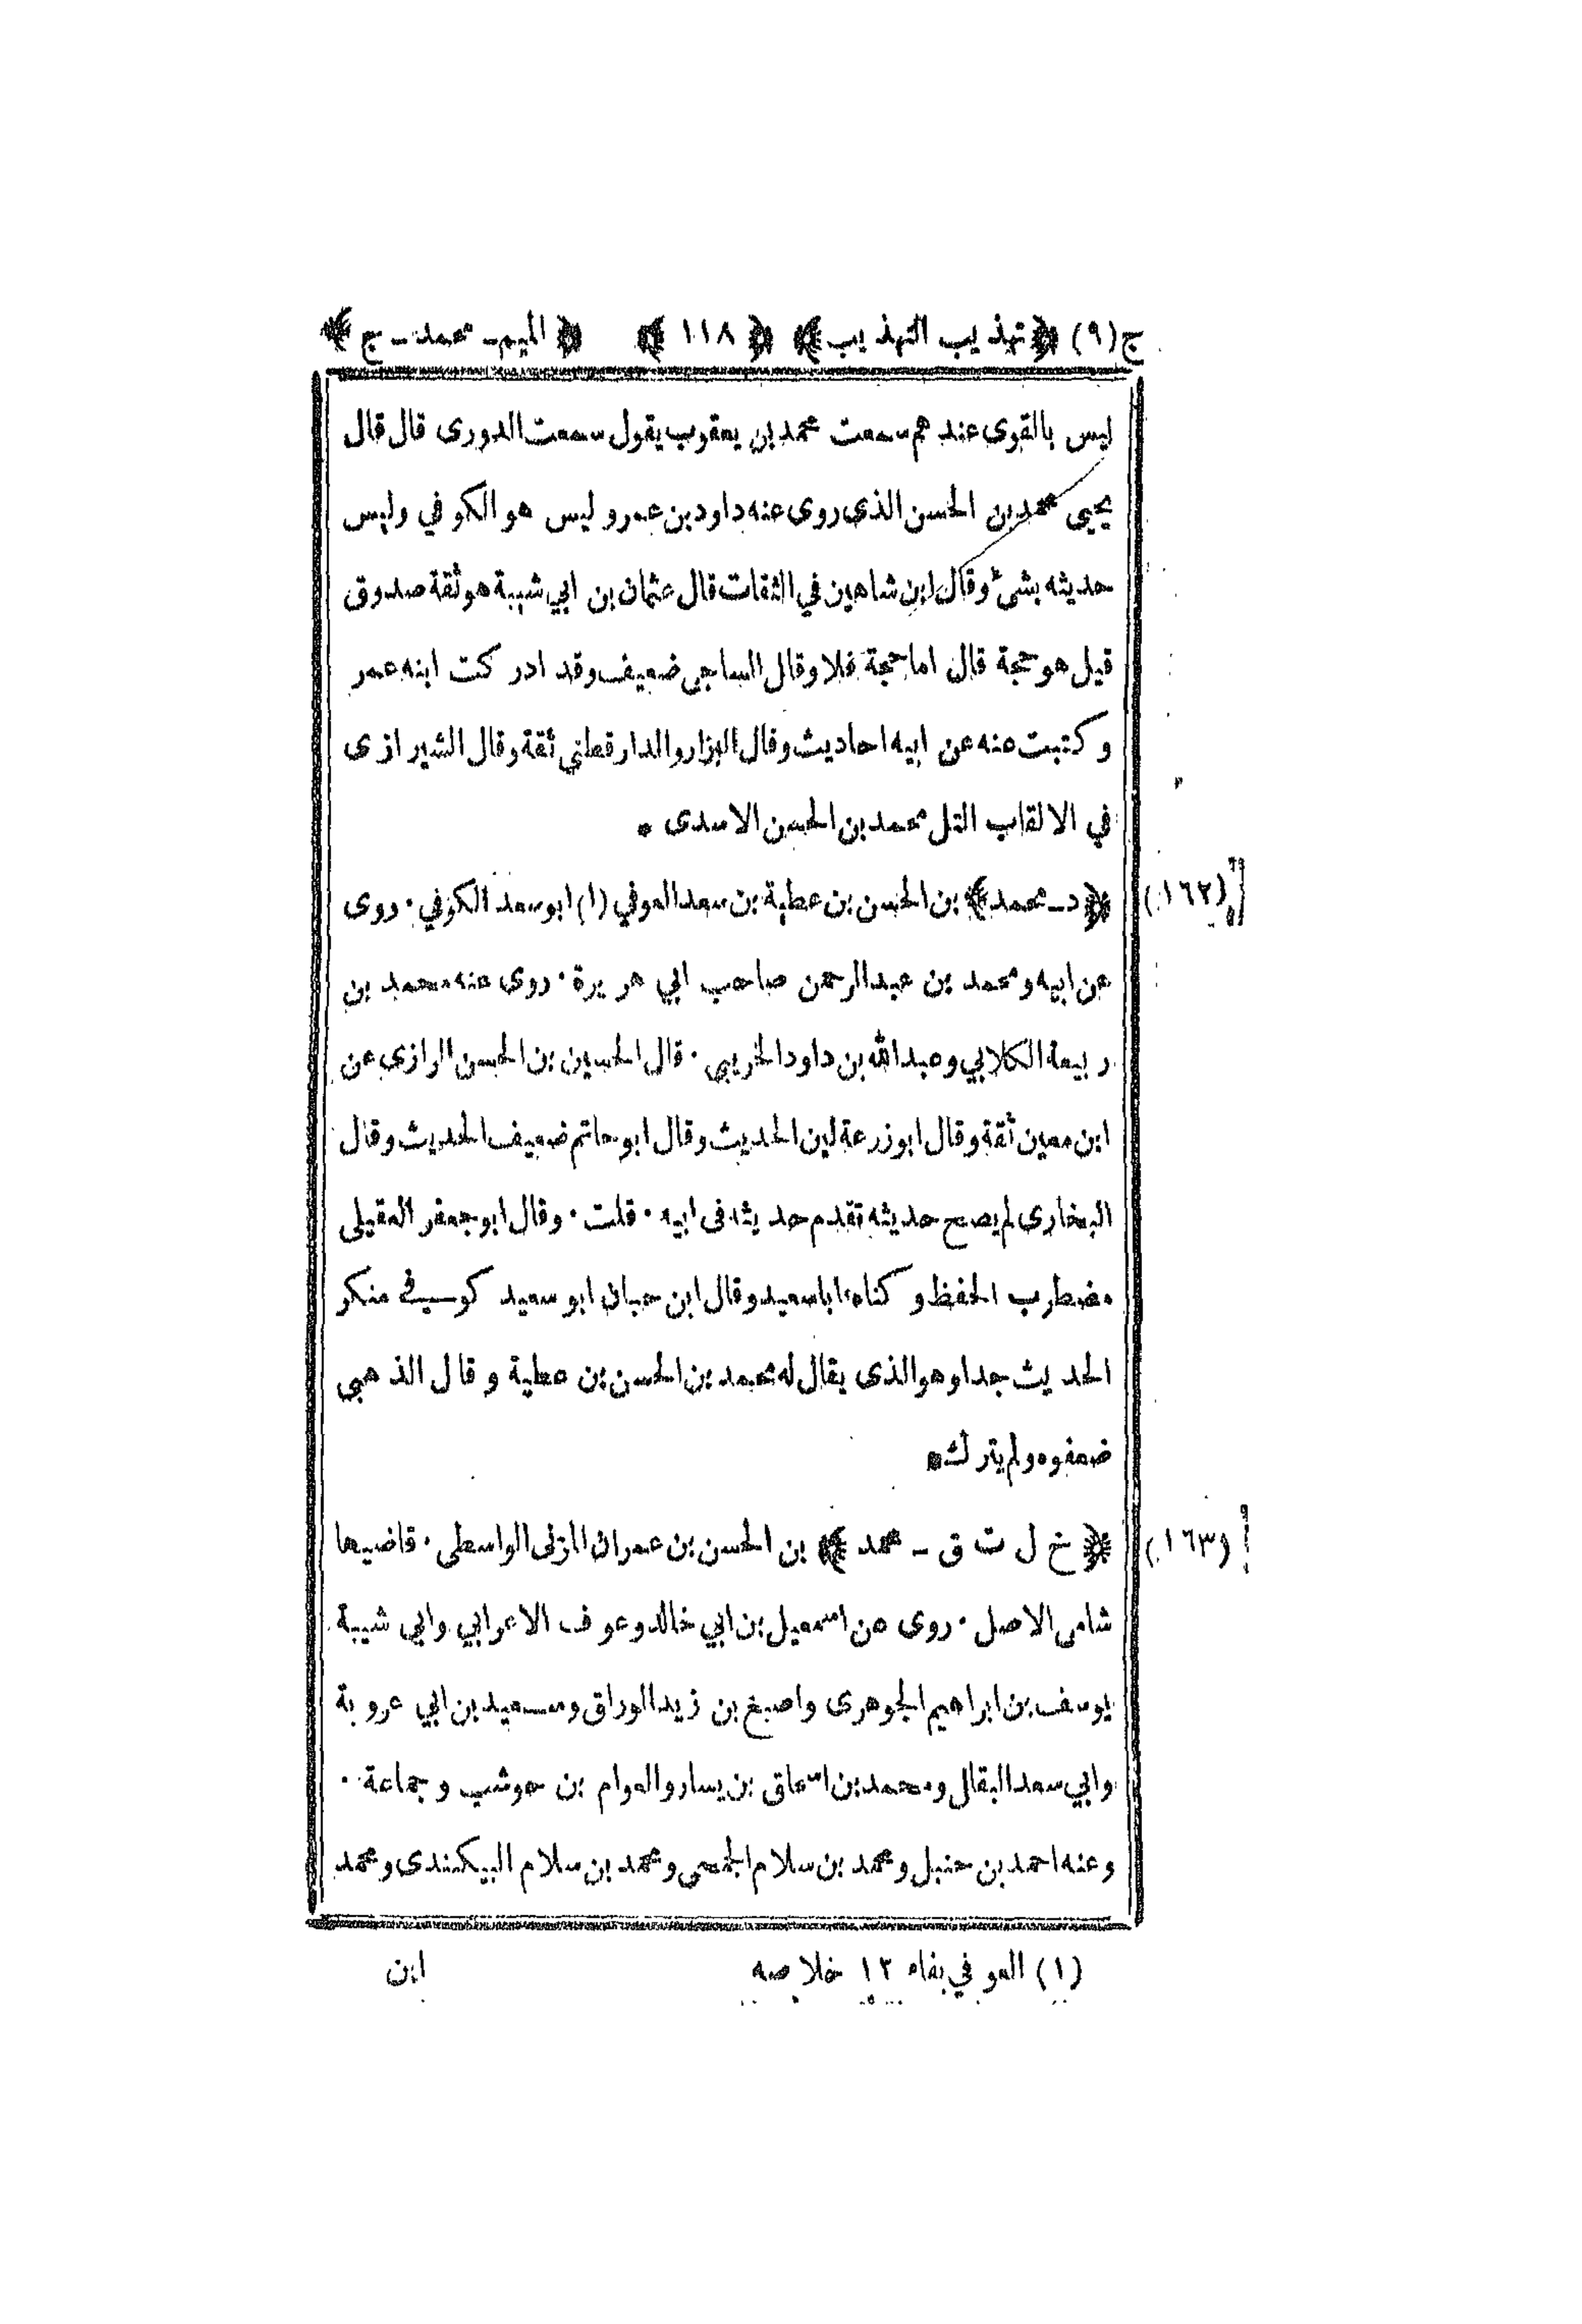 ج(٩) ﴿تهذيب التهذيب﴾ ﴿١١٨﴾ ﴿الميم - محمد - ج﴾
ليس بالقوى عندهم سمعت محمد بن يعقوب يقول سمعت الدورى قال قال
يحيى محمد بن الحسن الذى روى عنه داود بن عمرو ليس هو الكوفي وليس
حديثه بشئ وقال ابن شاهين في الثقات قال عثمان بن ابي شيبة هو ثقة صدوق
قيل هو حجة قال اما حجة فلا وقال الساجى ضعيف وقد ادركت ابنه عمر
وكتبت عنه عن ابيه احاديث وقال البزار والدارقطني ثقة وقال الشيرازى
في الالقاب التل محمد بن الحسن الاسدى •
(١٦٢) ﴿د - محمد﴾ بن الحسن بن عطية بن سعد العوفي (١) ابو سعد الكوفي · روى
عن ابيه ومحمد بن عبدالرحمن صاحب ابي هريرة · روى عنه محمد بن
ربيعة الكلابي وعبدالله بن داود الخريبى · قال الحسين بن الحسن الرازى عن
ابن معين ثقة وقال ابو زرعة لين الحديث وقال ابو حاتم ضعيف الحديث وقال
البخارى لم يصح حديثه تقدم حديثه فى ابيه · قلت · وقال ابو جعفر العقيلى
مضطرب الحفظ وكناه ابا سعيد وقال ابن حبان ابو سعيد كوسفى منكر
الحديث جدا وهو الذى يقال له محمد بن الحسن بن عطية وقال الذهبي
ضعفوه ولم يترك •
(١٦٣) ﴿خ ل ت ق - محمد﴾ بن الحسن بن عمران المزنى الواسطى · قاضيها
شامى الاصل · روى عن اسمعيل بن ابي خالد وعوف الاعرابي وابي شيبة
يوسف بن ابراهيم الجوهرى واصبغ بن زيد الوراق وسعيد بن ابي عروبة
وابي سعد البقال ومحمد بن اسحاق بن يسار والعوام بن حوشب وجماعة ·
وعنه احمد بن حنبل ومحمد بن سلام الجمحى ومحمد بن سلام البيكندى ومحمد
(١) العوفي بفاء ١٢ خلاصه
ابن